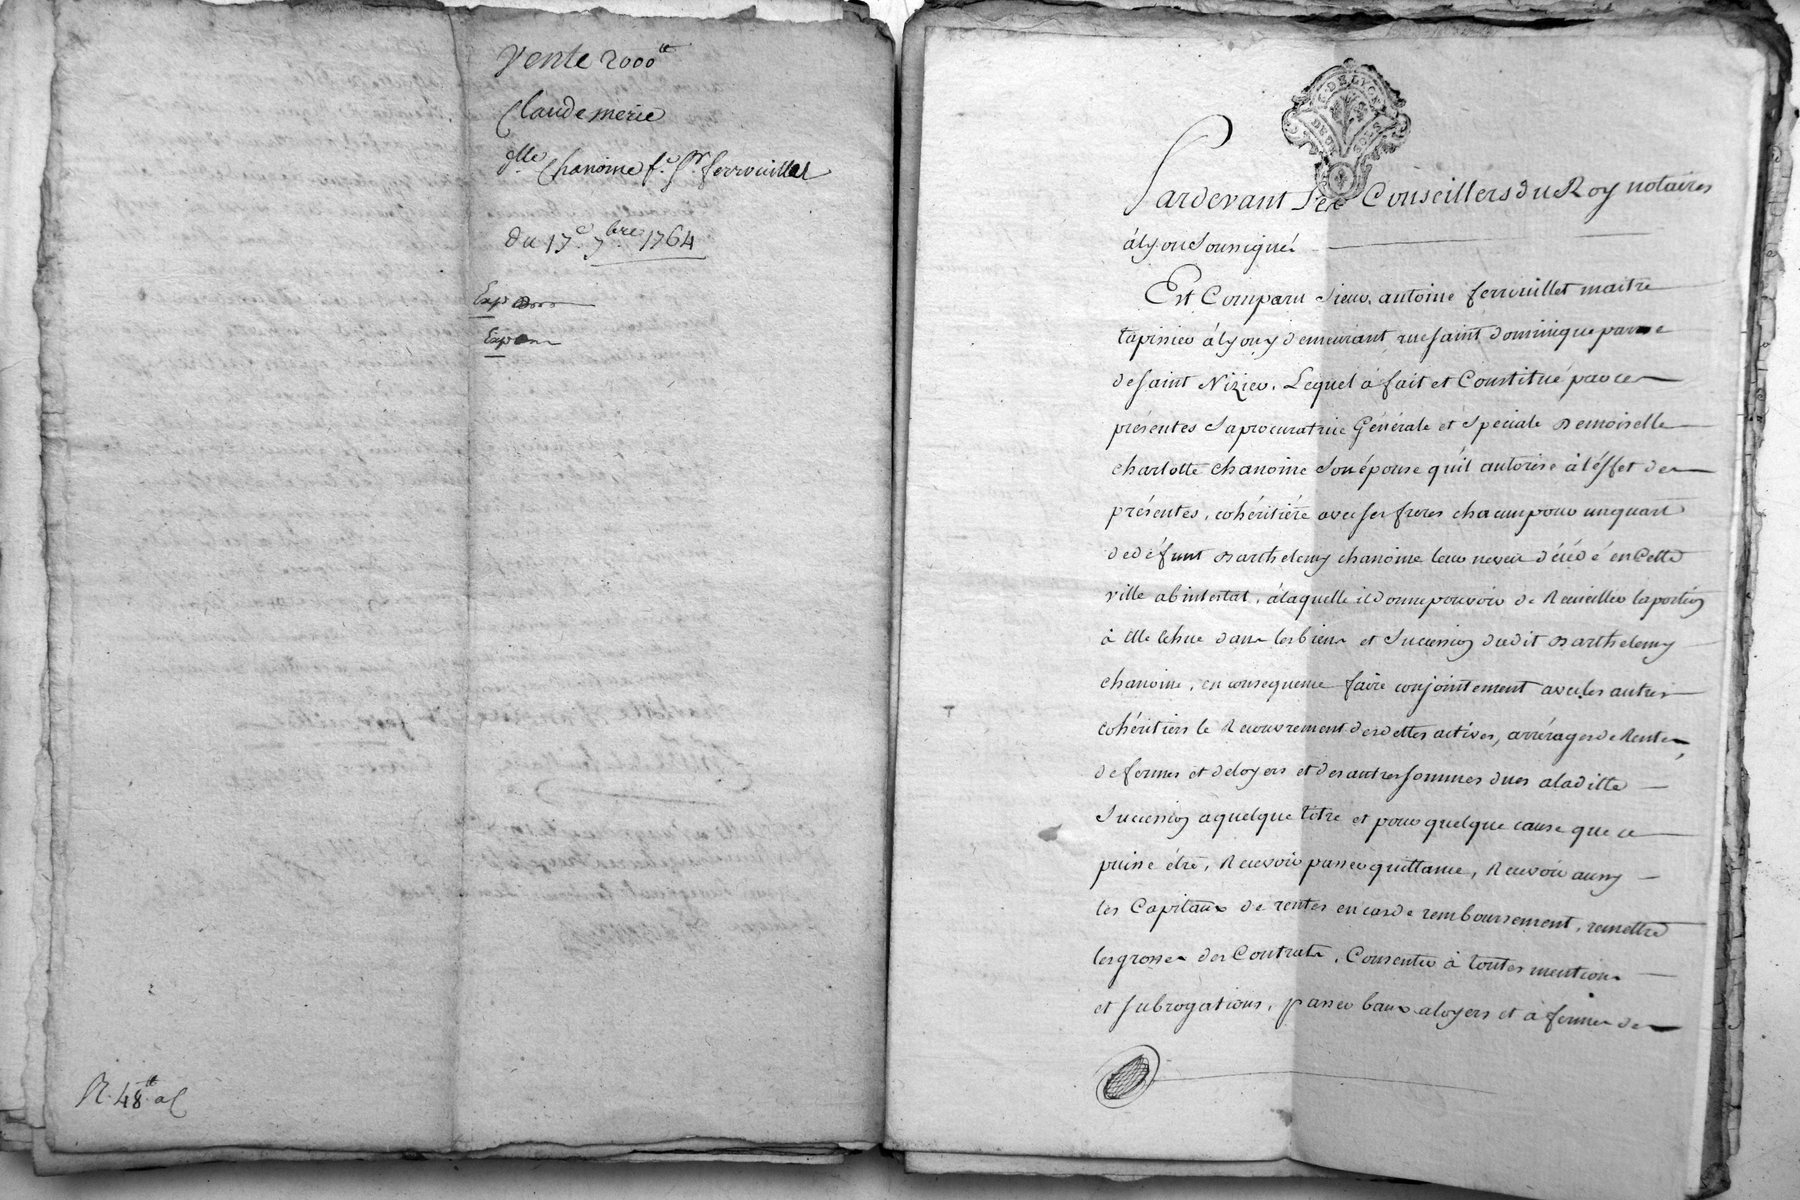 Vente 2000ᵗᵗ
Claude merie
dˡˡᵉ Chanoine f.ᵉ Sʳ ferrouillat
du 17ᵉ 7ᵇʳᵉ 1764
Exp
Exp
R. 48ᵗᵗ
G. DE LYON
Pardevant Les Conseillers du Roy notaires
à lyon Soussignés
Est Comparu Sieur antoine ferrouillet maitre
tapissier à lyon y demeurant rue saint dominique parsse
de saint Nizier. Lequel à fait et Constitué par ces
présentes Sa procuratrice Générale et Spéciale Demoiselle
charlotte chanoine Son épouse qu'il autorise à l'éffet des
présentes, cohéritiére avec ses freres chacun pour un quart
de déffunt Barthelemy chanoine leur neveu décédé en Cette
ville ab intestat, à laquelle il donne pouvoir de Recueillir la portion
à Elle échue dans les biens et Succession dudit Barthelemy
chanoine, en consequence faire conjointement avec les autres
cohéritiers le Recouvrement des dettes actives, arrérages de Rentes,
de fermes et de loyers et des autres sommes dues a la ditte
Succession a quelque titre et pour quelque cause que ce
puisse étre, Recevoir passer quittance, Recevoir aussy
les Capitaux de rentes en cas de remboursement, remettre
les grosses des Contrats, Consentir à toutes mentions
et subrogations, passer baux a loyers et à fermes des